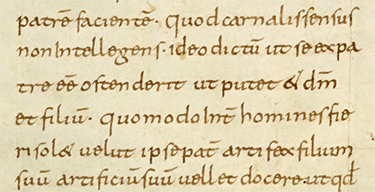 patrē facientē· quod carnalis sensus
non intellegens· ideo dictū ut se expa
tre eē ostenderit ut putet & dm̄
et filiū· quomodo int̄ homines fie
ri sol& uelut ipse pat̄ artifex filium
suū artificiū suū uellet docere· ut qd̄